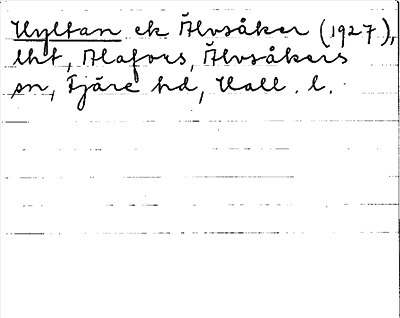 Hyltan ek Älvsåker (1927),
lht, Alafors, Älvsåkers
sn, Fjäre hd, Hall. l.